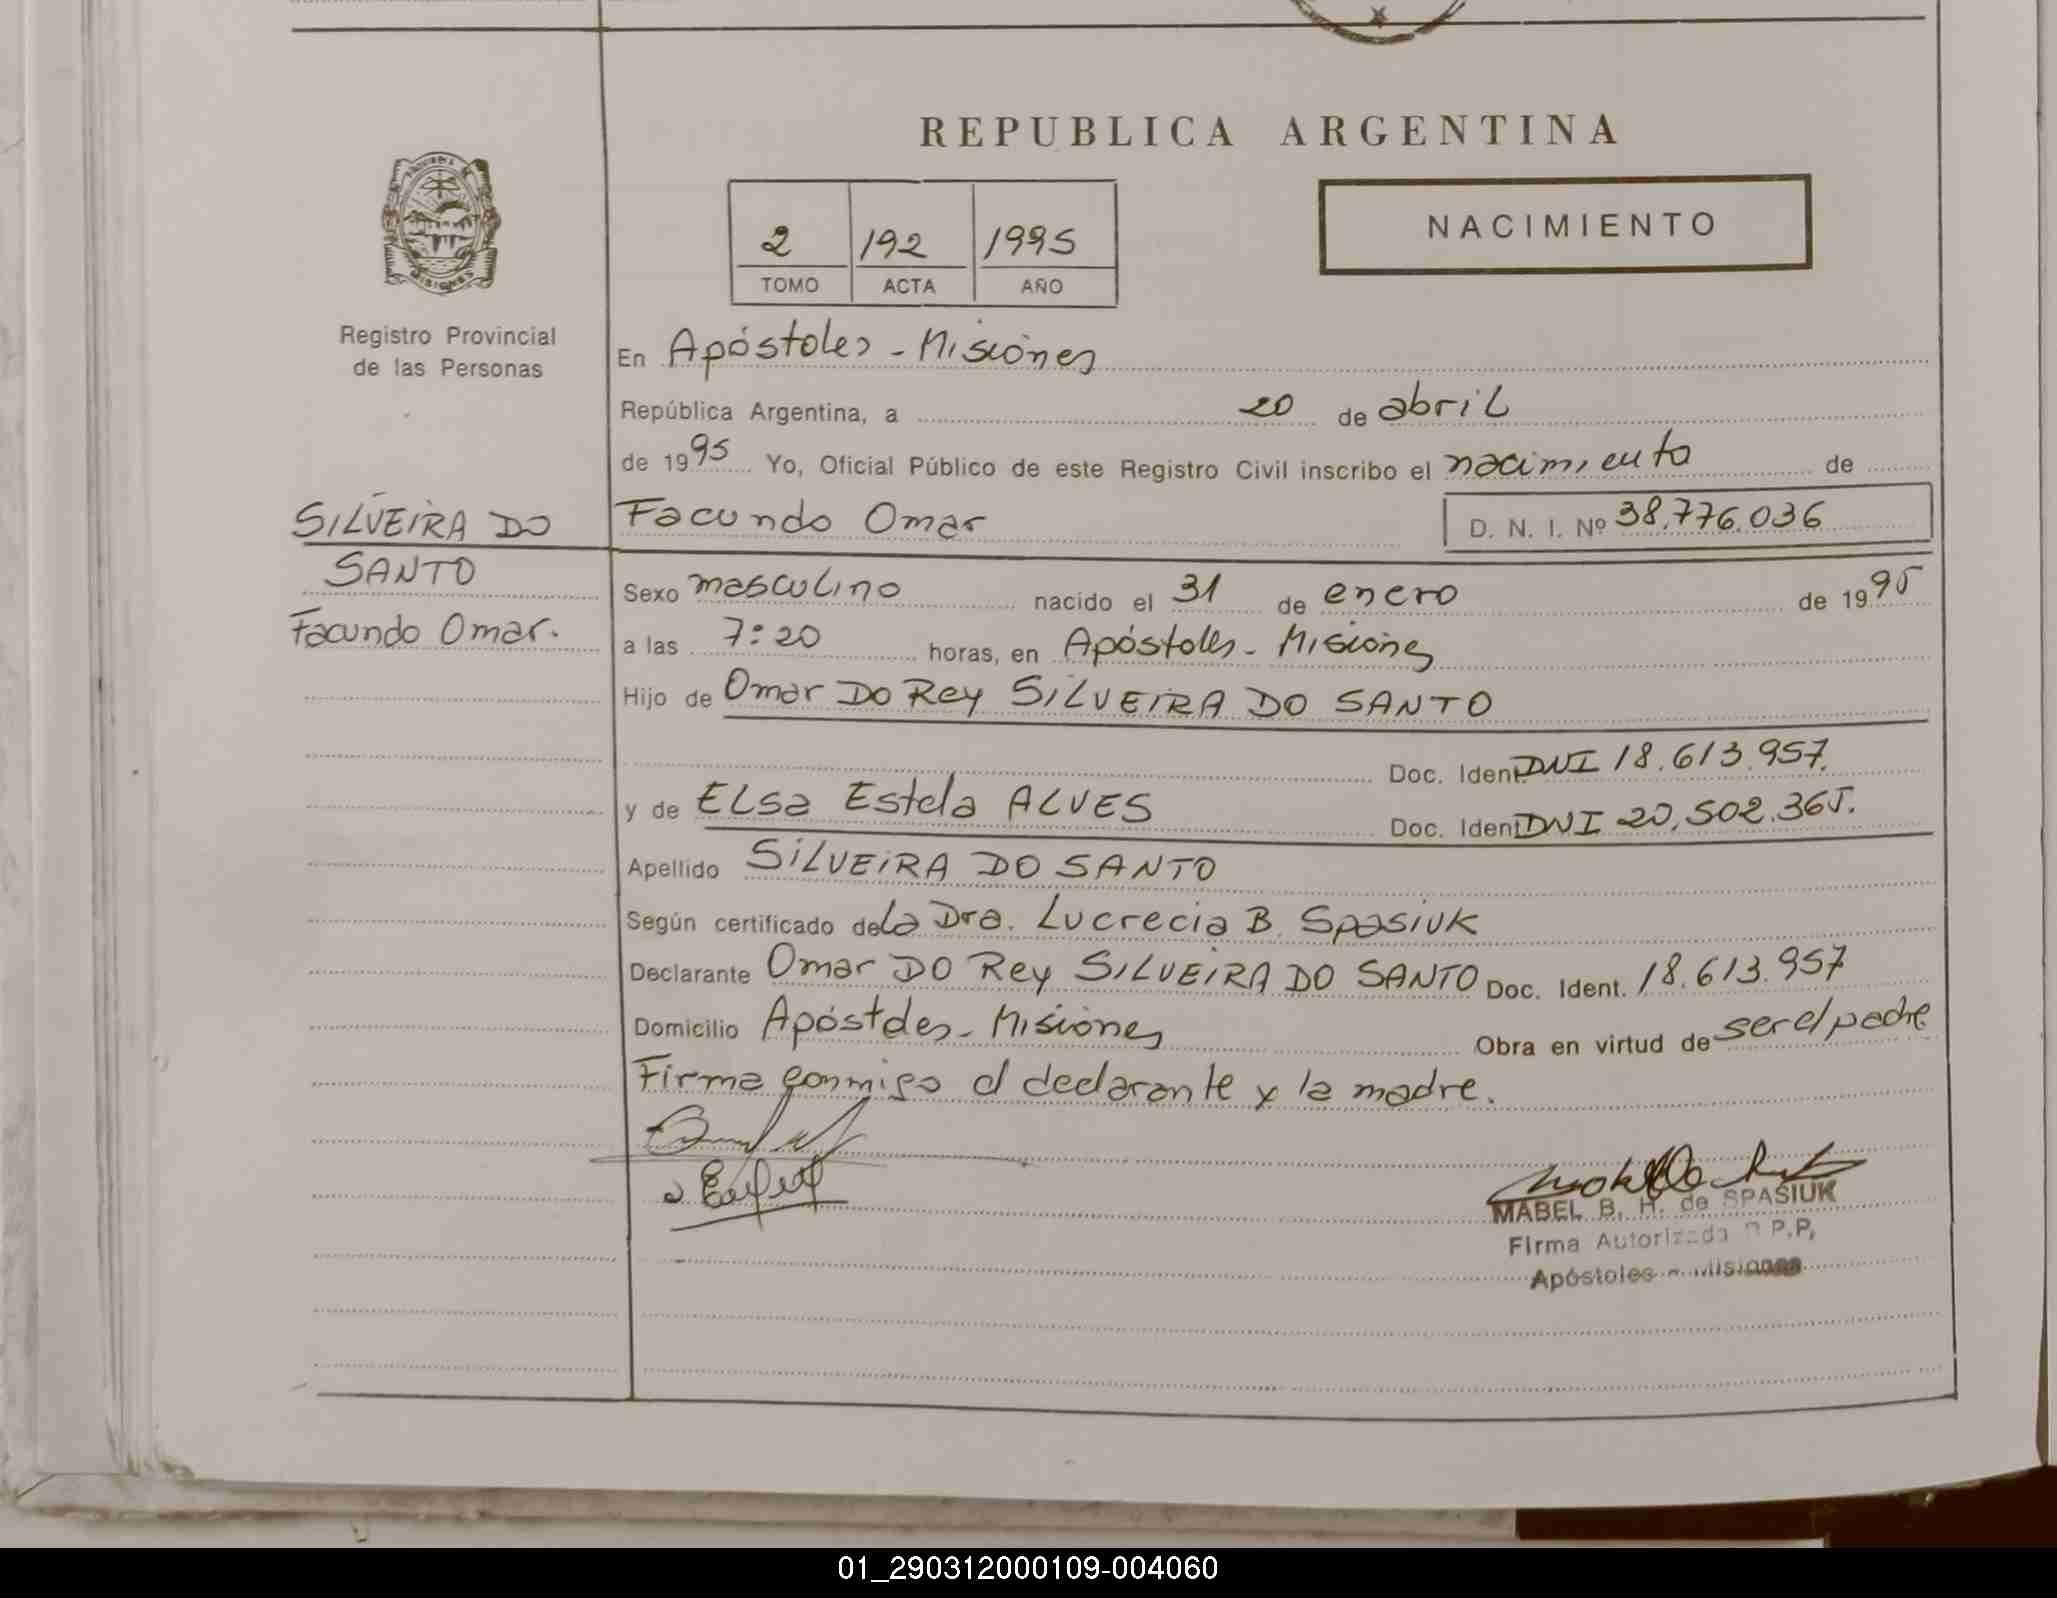 REPUBLICA ARGENTINA
NACIMIENTO
2 192 1995
TOMO ACTA AÑO
Registro Provincial
de las Personas
En Apóstoles - Misiones
República Argentina, a 20 de abril
de 1995 Yo, Oficial Público de este Registro Civil inscribo el nacimiento de
SILVEIRA DO
SANTO
Facundo Omar.
Facundo Omar D. N. I. Nº 38.776.036
Sexo masculino nacido el 31 de enero de 1995
a las 7:20 horas, en Apóstoles - Misiones
Hijo de Omar DO Rey SILVEIRA DO SANTO
Doc. Ident. DNI 18.613.957.
y de ELsa Estela ALVES Doc. Ident. DNI 20.502.365.
Apellido SILVEIRA DO SANTO
Según certificado de La Dra. Lucrecia B. Spasiuk
Declarante Omar DO Rey SILVEIRA DO SANTO Doc. Ident. 18.613.957
Domicilio Apóstoles - Misiones Obra en virtud de ser el padre
Firma conmigo el declarante y la madre.
MABEL B. H. de SPASIUK
Firma Autorizada R.P.P.
Apóstoles - Misiones
01_290312000109-004060